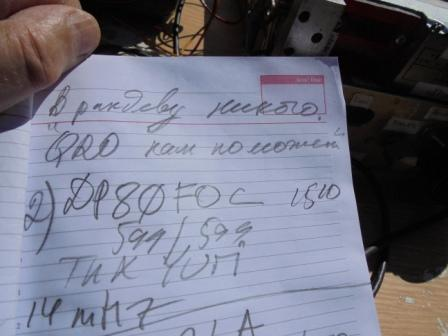 В рандеву никого.
"QRO нам поможет"
2) DP8ØFOC 1510
599/599
ТНК
14 mHz